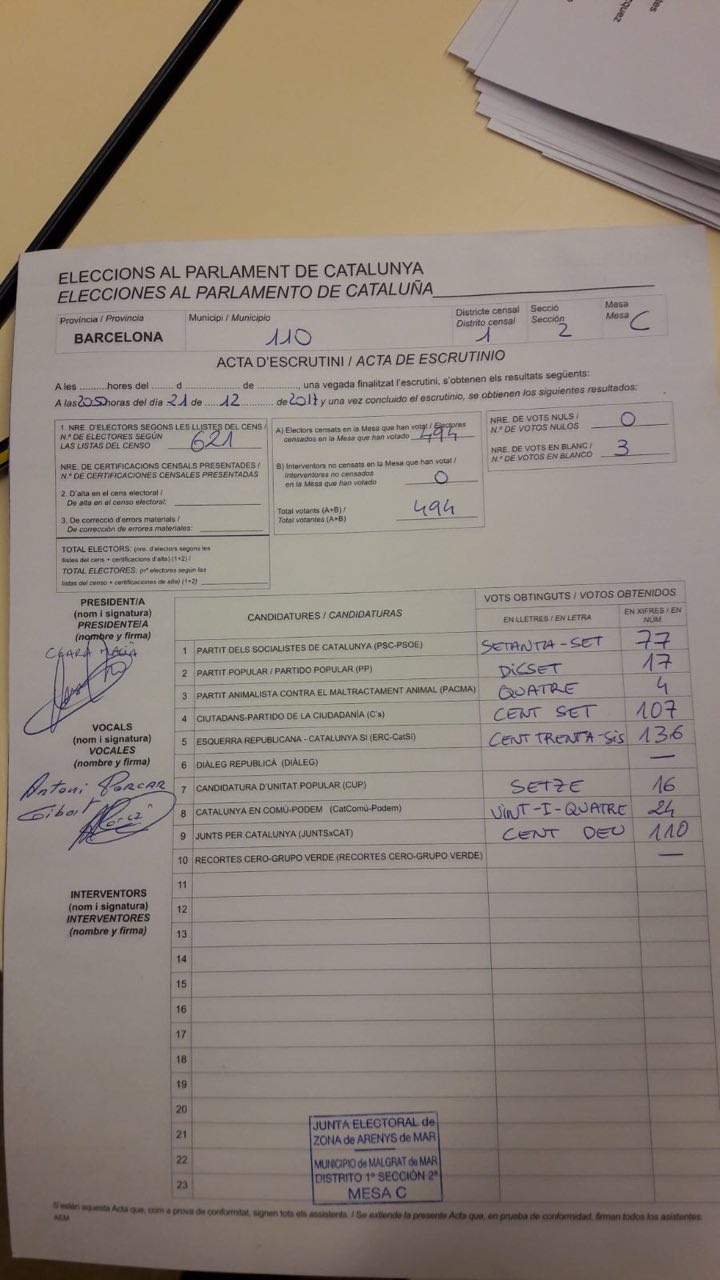 ELECCIONS AL PARLAMENT DE CATALUNYA
ELECCIONES AL PARLAMENTO DE CATALUÑA
Província / Provincia
BARCELONA
Municipi / Municipio
110
Districte censal
Distrito censal
1
Secció
Sección
2
Mesa
Mesa
C
ACTA D'ESCRUTINI / ACTA DE ESCRUTINIO
A les ..........hores del ...... d ................ de ............., una vegada finalitzat l'escrutini, s'obtenen els resultats següents:
A las horas del día 21 de 12 de 2017 y una vez concluido el escrutinio, se obtienen los siguientes resultados:
1. NRE. D'ELECTORS SEGONS LES LLISTES DEL CENS /
N.º DE ELECTORES SEGÚN
LAS LISTAS DEL CENSO
621
NRE. DE CERTIFICACIONS CENSALS PRESENTADES /
N.º DE CERTIFICACIONES CENSALES PRESENTADAS
2. D'alta en el cens electoral /
De alta en el censo electoral:
3. De correcció d'errors materials /
De corrección de errores materiales:
TOTAL ELECTORS: (nre. d'electors segons les
llistes del cens + certificacions d'alta) (1+2) /
TOTAL ELECTORES: (nº electores según las
listas del censo + certificaciones de alta) (1+2)
A) Electors censats en la Mesa que han votat / Electores
censados en la Mesa que han votado 494
B) Interventors no censats en la Mesa que han votat /
Interventores no censados
en la Mesa que han votado
0
Total votants (A+B) /
Total votantes (A+B)
494
NRE. DE VOTS NULS /
N.º DE VOTOS NULOS
0
NRE. DE VOTS EN BLANC /
N.º DE VOTOS EN BLANCO
3
PRESIDENT/A
(nom i signatura)
PRESIDENTE/A
(nombre y firma)
VOCALS
(nom i signatura)
VOCALES
(nombre y firma)
Antoni
INTERVENTORS
(nom i signatura)
INTERVENTORES
(nombre y firma)
CANDIDATURES / CANDIDATURAS
VOTS OBTINGUTS / VOTOS OBTENIDOS
EN LLETRES / EN LETRA
EN XIFRES / EN
NUM
1 PARTIT DELS SOCIALISTES DE CATALUNYA (PSC-PSOE) SETANTA-SET 77
2 PARTIT POPULAR / PARTIDO POPULAR (PP) DISSET 17
3 PARTIT ANIMALISTA CONTRA EL MALTRACTAMENT ANIMAL (PACMA) QUATRE 4
4 CIUTADANS-PARTIDO DE LA CIUDADANÍA (C's) CENT SET 107
5 ESQUERRA REPUBLICANA - CATALUNYA SÍ (ERC-CatSí) CENT TRENTA-SIS 136
6 DIÀLEG REPUBLICÀ (DIÀLEG) —
7 CANDIDATURA D'UNITAT POPULAR (CUP) SETZE 16
8 CATALUNYA EN COMÚ-PODEM (CatComú-Podem) VINT-I-QUATRE 24
9 JUNTS PER CATALUNYA (JUNTSxCAT) CENT DEU 110
10 RECORTES CERO-GRUPO VERDE (RECORTES CERO-GRUPO VERDE) —
11
12
13
14
15
16
17
18
19
20
21
22
23
JUNTA ELECTORAL de
ZONA de ARENYS de MAR
MUNICIPIO de MALGRAT de MAR
DISTRITO 1º SECCIÓN 2ª
MESA C
S'estén aquesta Acta que, com a prova de conformitat, signen tots els assistents. / Se extiende la presente Acta que, en prueba de conformidad, firman todos los asistentes.